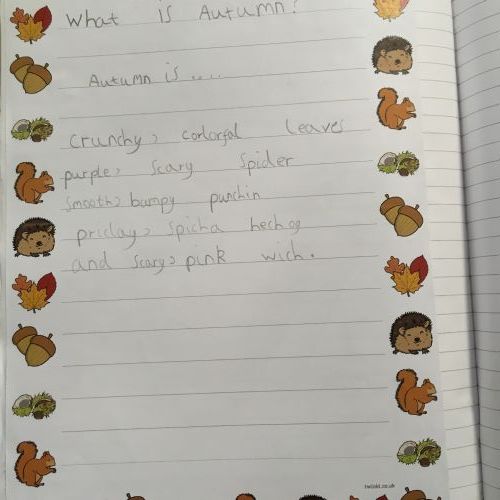 What is Autumn?
Autumn is ....
crunchy, corlorfal leaves
purple, scary spider
smooth, bumpy punchin
priclay, spicha hechog
and scary, pink wich.
twinkl.co.uk